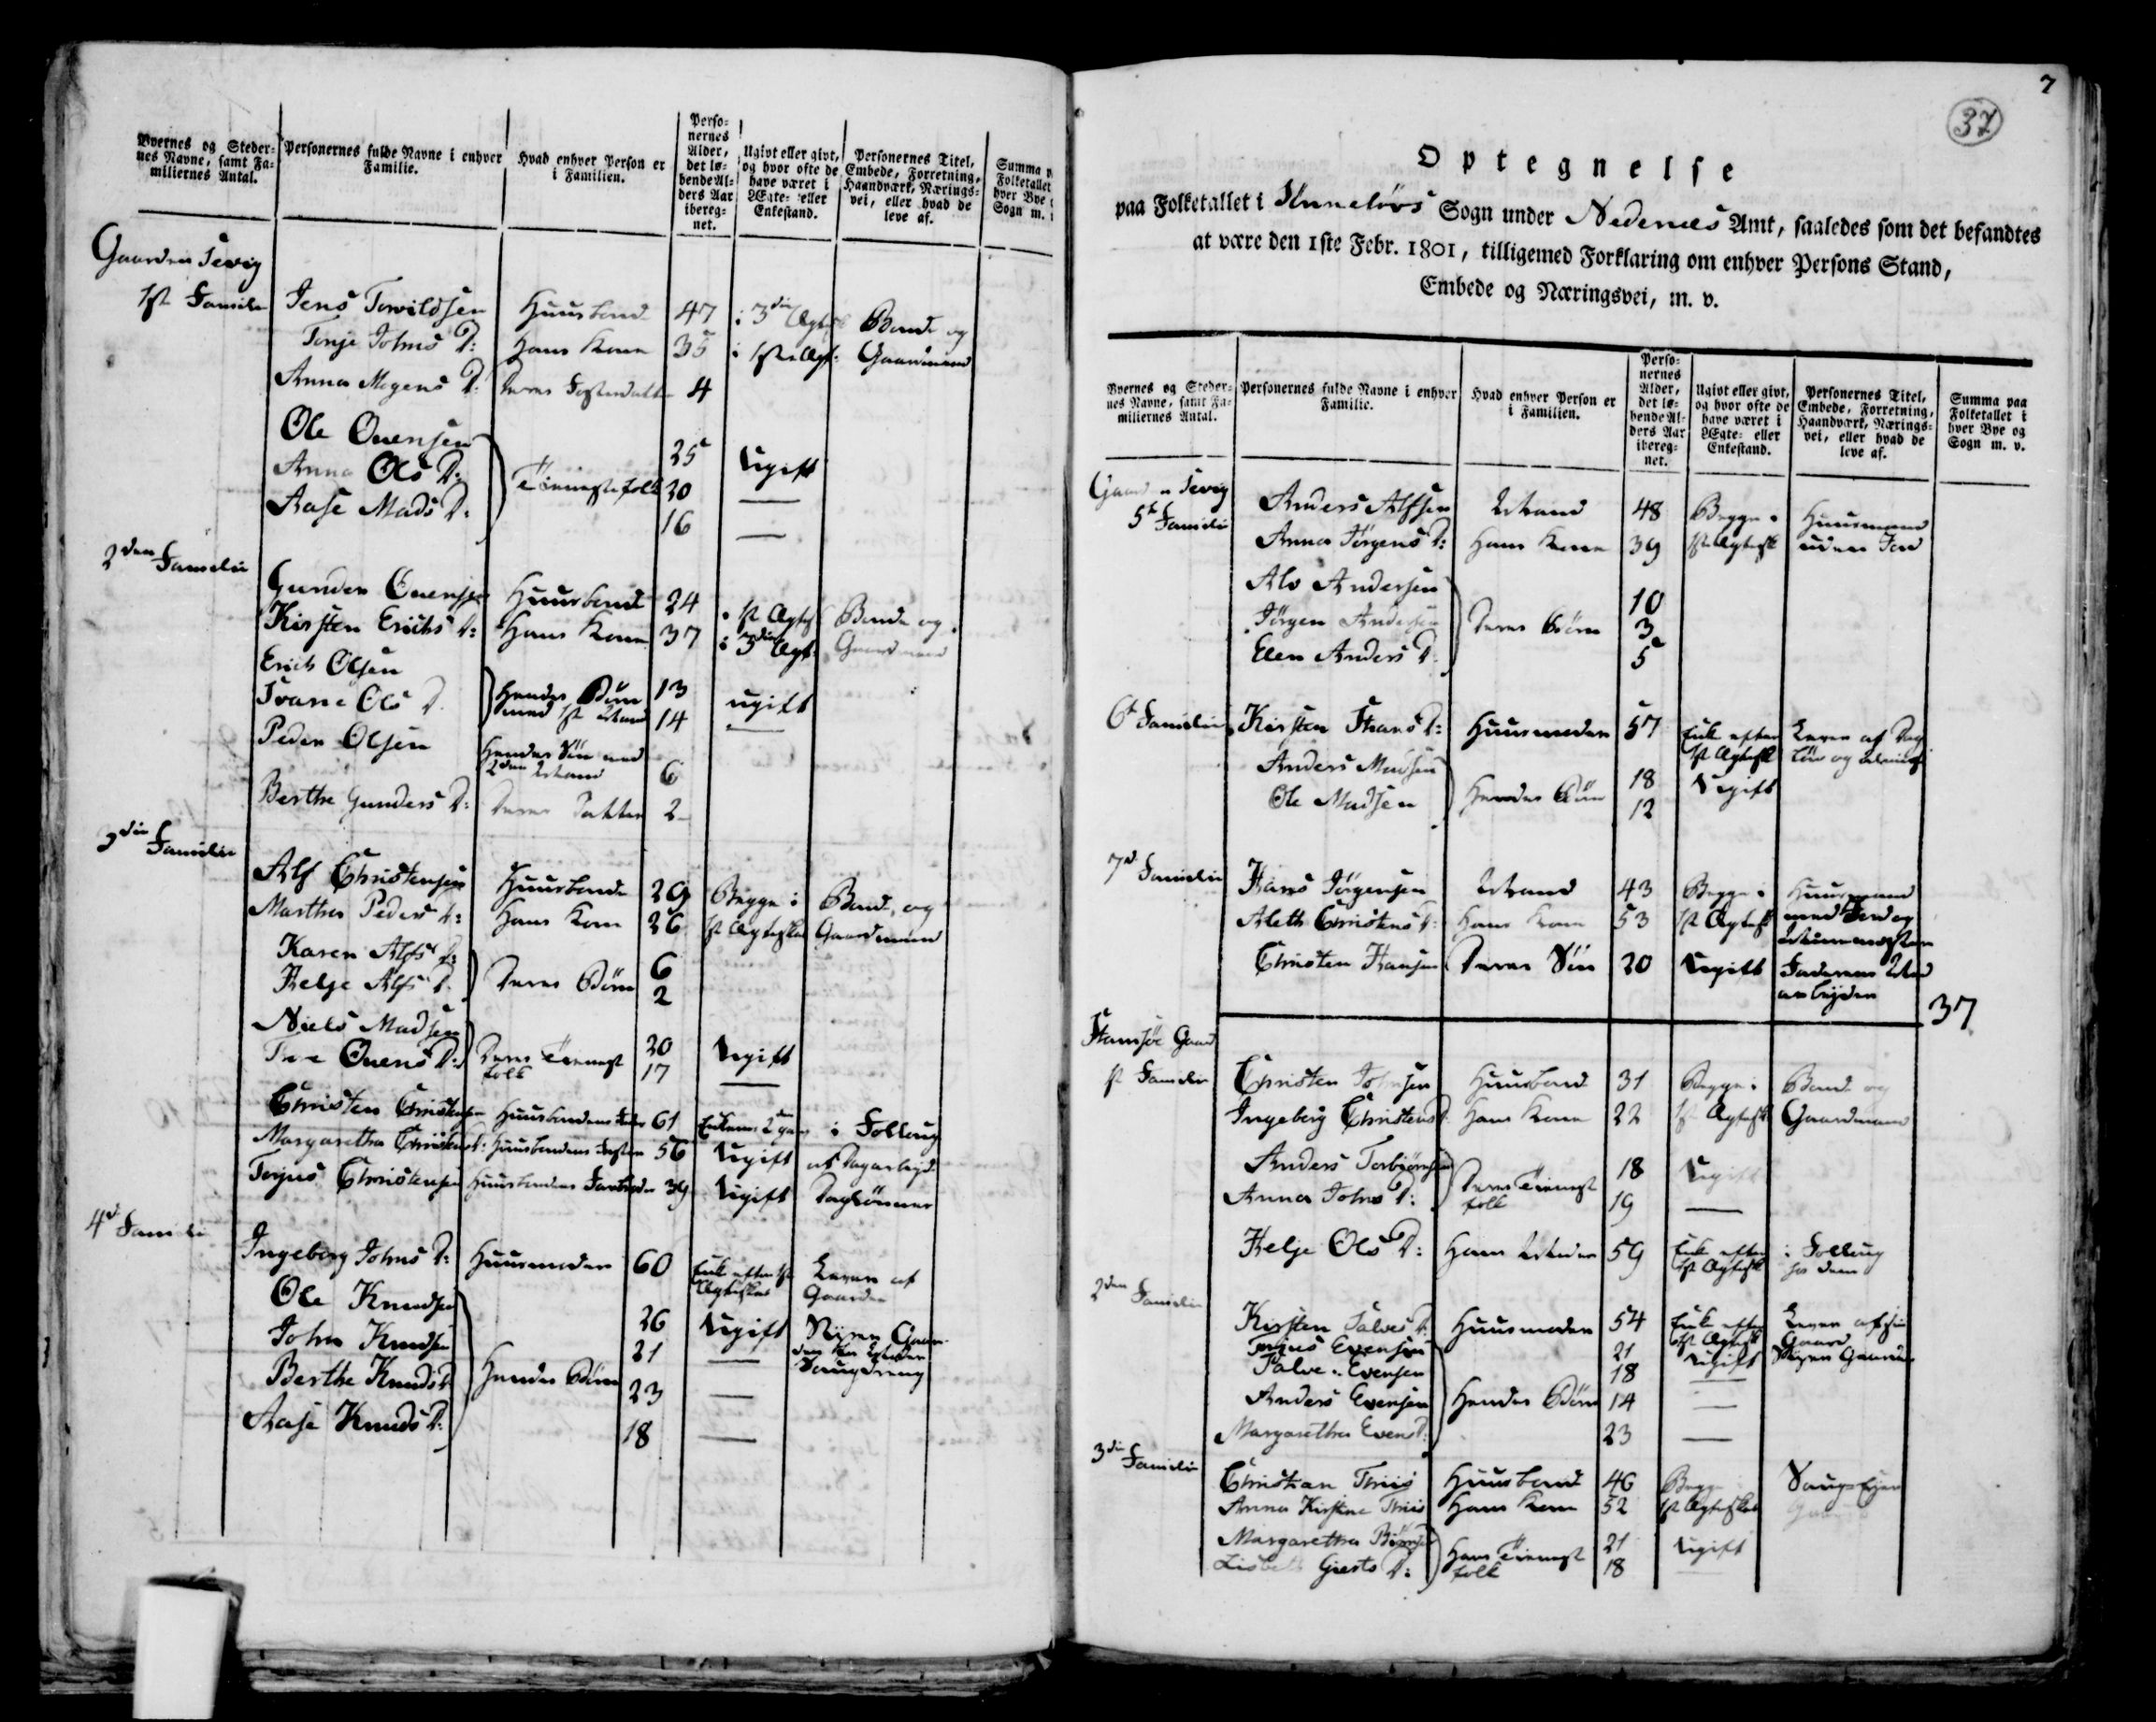 Byernes og Steder-
nes Navne, samt Fa-
miliernes Antal.
Personernes fulde Navne i enhver
Familie.
Hvad enhver Person er
i Familien.
Perso-
nernes
Alder,
det lø-
bende Al-
ders Aar
ibereg-
net.
Ugivt eller givt,
og hvor ofte de
have været i
Ægte- eller
Enkestand.
Personernes Titel,
Embede, Forretning,
Haandværk, Nærings-
vei, eller hvad de
leve af.
Summa
Folketallet
hver Bye
Sogn m.
Gaarden Sevig
1ste Familie Jens Huusbond 47 i 3die Bonde og
Tonje Johns D: Hans Kone 35 i 1ste Ægt: Gaardmand
Anna Mogens D: Deres Fosterdatter 4
Ole Ouensen 25 Ugift
Anna Ols D: Tienestefolk 20 —
Aase Mads D: 16 —
2den Familie
Gunder Ouensen Huusbond 24 i 1st Ægt Bonde og
Kirsten Erichs D: Hans Kone 37 i 3die Ægt: Gaardmand
Erich Olsen Hendes Børn 13 ugift
Ols D. med 1st Mand 14 —
Peder Olsen Hendes Søn med
2den Mand 6
Berthe Gunders D: Deres Datter 2
3die Familie
Alf Christensen Huusbonde 29 Begge i Bonde og
Marthe Peders D: Hans Kone 26 1st Ægteskab Gaardmand
Karen Alfs D: 6
Helje Alfs D. Deres Børn 2
Niels Madsen 20 Ugift
Ouens D: Deres Tienest
folk 17 —
Christen Christensen Huusbondens Fader 61 i Folloug
Margarethe Christens D: Huusbondens 56 Ugift af Dagarbejd
Terjus Christensen Huusbondens 39 Ugift Daglønner
4de Familie
Ingeborg Johns D: Huusmoder 60 Enk efter 1st
Ægteskab Lever af
Gaarden
Ole Knudsen 26 Ugift
John Knudsen 21 —
Berthe Knuds D: Hendes Børn 23 —
Aase Knuds D: 18 —
7
37
Optegnelse
paa Folketallet i Sogn under Nedenæs Amt, saaledes som det befandtes
at være den 1ste Febr. 1801, tilligemed Forklaring om enhver Persons Stand,
Embede og Næringsvei, m. v.
Byernes og Steder-
nes Navne, samt Fa-
miliernes Antal.
Personernes fulde Navne i enhver
Familie.
Hvad enhver Person er
i Familien.
Perso-
nernes
Alder,
det lø-
bende Al-
ders Aar
ibereg-
net.
Ugivt eller givt,
og hvor ofte de
have været i
Ægte- eller
Enkestand.
Personernes Titel,
Embede, Forretning,
Haandværk, Nærings-
vei, eller hvad de
leve af.
Summa paa
Folketallet i
hver Bye og
Sogn m. v.
Gaarden Sevig
5te Familie Anders Alfsen Mand 48 Begge i Huusmand
Anna Jørgens D: Hans Kone 39 1st Ægtesk uden Jord
Alv Andersen 10
Jørgen Andersen Deres Børn 3
Elen Anders D. 5
6te Familie Kirsten D: Huusmoder 57 Enk efter
1st Ægtesk Lever af Dag
løn og
Anders Madsen 18 Ugift
Ole Madsen Hendes Børn 12
7de Familie Hans Jørgensen Mand 43 Begge i Huusmand
Aleth Christens D: Hans Kone 53 1st Ægtesk med Jord og
Christen Hansen Deres Søn 20 Ugift Faderens
arbejder
37
Gaard
1st Familie Christen Johnsen Huusbond 31 Begge i Bonde og
Ingeborg Christens D. Hans Kone 22 1st Ægtesk Gaardmand
Anders Torbiørnsen 18 Ugift
Anna Johns D: Deres Tienest
folk 19 —
Helje Ols D: Hans Moder 59 Enk efter
1st Ægtesk i Folloug
hos dem
2den Familie
Kirsten Salves D. Huusmoder 54 Enk efter
1st Ægtesk Lever af sin
Gaard
Evensen 21 Ugift
Salve Evensen 18 —
Anders Evensen Hendes Børn 14 —
Margarethe Evens D: 23 —
3die Familie
Christian Thiis Huusbond 46 Begge
Anna Kirstine Thiis Hans Kone 52 1st Ægteskab
Margarethe 21 Ugift
Lisbeth Gierts D: Hans Tienest
folk 18